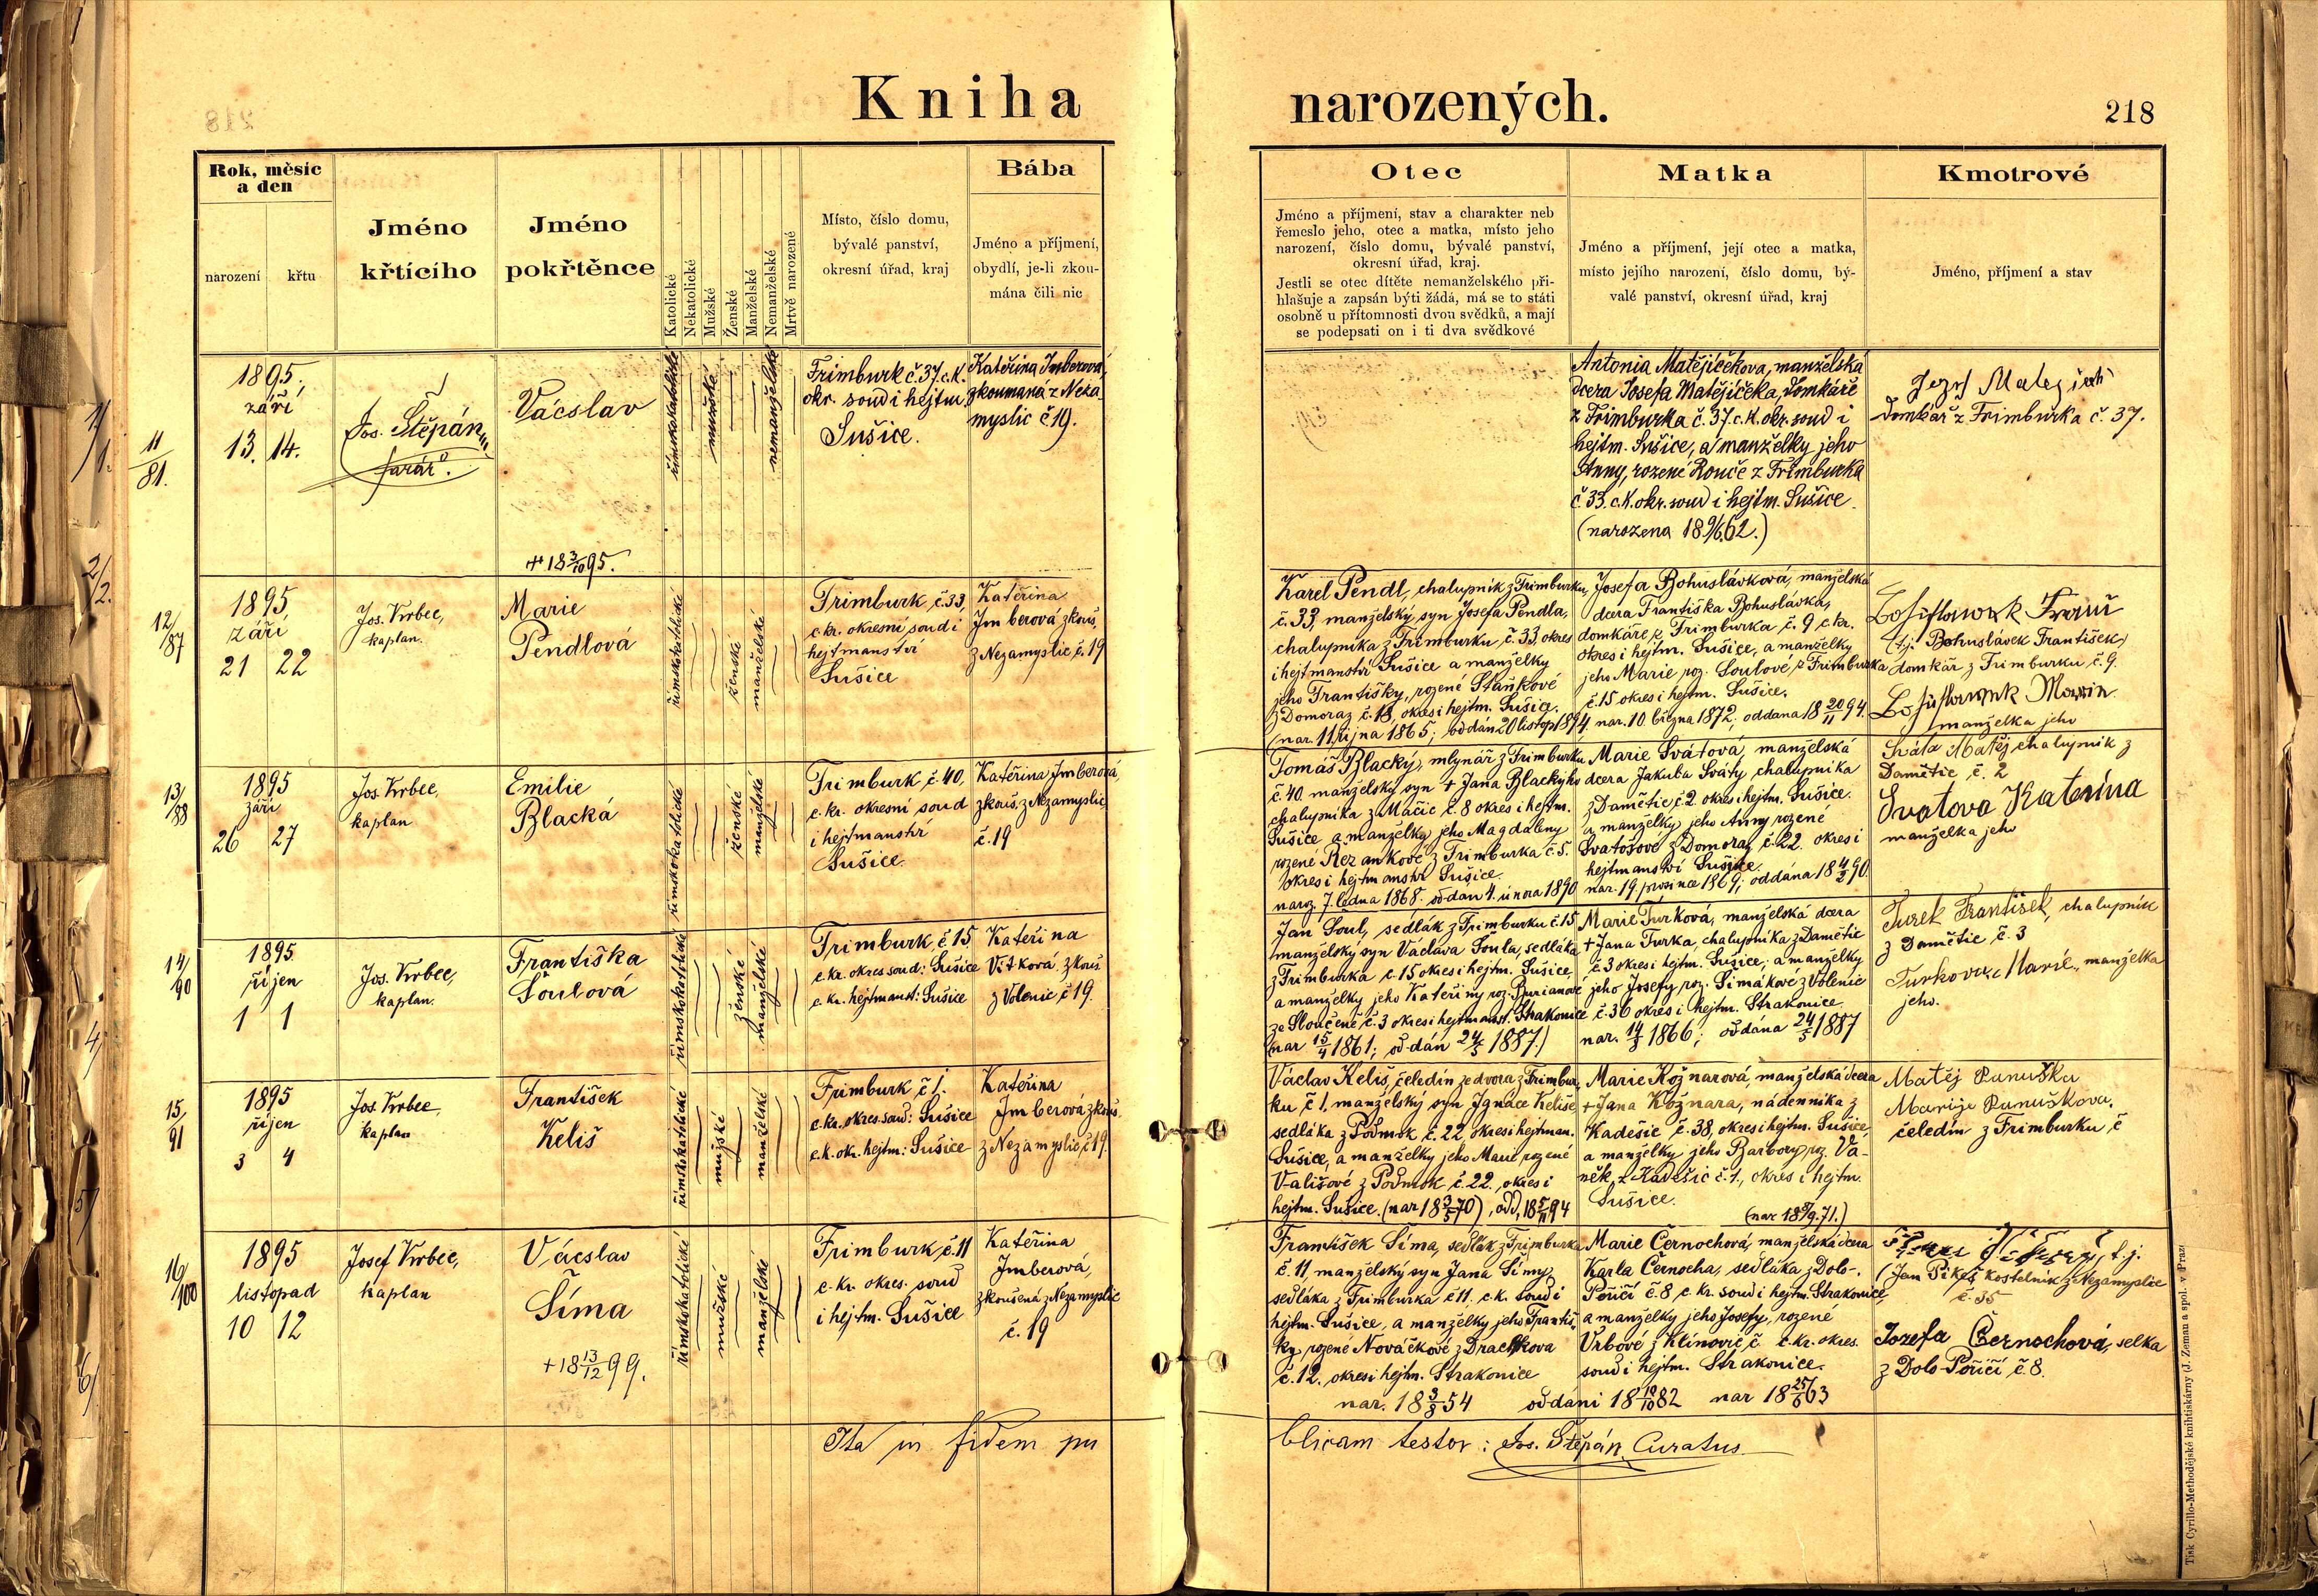 Kniha
narozených.
218
Rok, měsíc
a den
narození
křtu
Jméno
křtícího
Jméno
pokřtěnce
Katolické
Nekatolické
Mužské
Ženské
Manželské
Nemanželské
Mrtvě narozené
Místo, číslo domu,
bývalé panství,
okresní úřad, kraj
Bába
Jméno a příjmení,
obydlí, je-li zkou-
mána čili nic
Otec
Jméno a příjmení, stav a charakter neb
řemeslo jeho, otec a matka, místo jeho
narození, číslo domu, bývalé panství,
okresní úřad, kraj.
Jestli se otec dítěte nemanželského při-
hlašuje a zapsán býti žádá, má se to státi
osobně u přítomnosti dvou svědků, a mají
se podepsati on i ti dva svědkové
Matka
Jméno a příjmení, její otec a matka,
místo jejího narození, číslo domu, bý-
valé panství, okresní úřad, kraj
Kmotrové
Jméno, příjmení a stav
11/81.
1895.
září
13. 14.
Jos. Štěpán
farář.
Vácslav
+ 18 3/10 95.
římskokatolické
mužské
nemanželské
Frimburk č 37. c.k.
okr. soud i hejtm.
Sušice.
Kateřina Imberová,
zkoumaná z Neza
myslic č 19.
Antonia Matějíčkova, manželská
dcera Josefa Matějíčka, domkáře
z Frimburka č. 37. c.k. okr. soud i
hejtm. Sušice, a manželky jeho
Anny, rozené Rouče z Frimburka
č 33. c.k. okr. soud i hejtm. Sušice.
(narozena 18 9/6 62.)
Jozef
Domkář z Frimburka č. 37.
12/87
1895
září
21 22
Jos. Vrbec,
kaplan.
Marie
Pendlová
římskokatolické
ženské
manželské
Frimburk, č. 33,
c. kr. okresní soud i
hejtmanství
Sušice
Kateřina
Imberová zkouš.
z Nezamyslic č. 19
Karel Pendl, chalupník z Frimburku,
č. 33, manželský syn Josefa Pendla,
chalupníka z Frimburku č. 33, okres
i hejtmanství Sušice a manželky
jeho Františky, rozené Staňkové
z Domoraz č. 18, okres i hejtm. Sušice.
(nar. 11 října 1865; oddán 20 listop 1894
Josefa Bohuslávková, manželská
dcera Františka Bohuslávka,
domkáře z Frimburka č. 9 c. kr.
okres i hejtm. Sušice, a manželky
jeho Marie roz. Soulové z Frimburka
č. 15 okres i hejtm. Sušice.
nar. 10. března 1872; oddana 18 20/11 94.
(tj. Bohuslávek František)
domkář z Frimburku č. 9.
manželka jeho
13/88
1895
září
26 27
Jos. Vrbec,
kaplan
Emilie
Blacká
římskokatolické
ženské
manželské
Frimburk č. 40,
c. kr. okresní soud
i hejtmanství
Sušice.
Kateřina Imberová,
zkouš. z Nezamyslic
č. 19
Tomáš Blacký, mlynář z Frimburku
č. 40. manželský syn + Jana Blackýho
chalupníka z Mačic č. 8 okres i hejtm.
Sušice a manželky jeho Magdaleny
rozené Rezankové z Frimburka č. 5.
okres i hejtmanství Sušice.
naroz. 7. ledna 1868. oddán 4. února 1890
Marie Svátová, manželská
dcera Jakuba Sváty, chalupníka
z Damětic č. 2. okres i hejtm. Sušice.
a manželky jeho Anny rozené
Svatošové z Domoraz č. 22. okres i
hejtmanství Sušice.
nar. 19. prosince 1869; oddána 18 4/2 90.
Sváta Matěj chalupník z
Damětic č. 2
Svatova Katerina
manželka jeho
14/90
1895
říjen
1 1
Jos. Vrbec,
kaplan.
Františka
Soulová
římskokatolické
ženské
manželské
Frimburk, č 15
c. kr. okres soud: Sušice
c. kr. hejtmanst: Sušice
Kateřina
Vítková zkouš.
z Volenic č 19.
Jan Soul, sedlák z Frimburku č. 15
manželský syn Václava Soula, sedláka
z Frimburka č. 15 okres i hejtm. Sušice,
a manželky jeho Kateřiny roz. Burianové
ze Sloučené č. 3 okres i hejtmanst. Strakonice
(nar 15/4 1861; oddán 24/5 1887.)
Marie Turková, manželská dcera
+ Jana Turka, chalupníka z Damětic
č. 3 okres i hejtm. Sušice; a manželky
jeho Josefy, roz. Simákové z Volenic
č. 36 okres i hejtm. Strakonice.
nar. 14/8 1866; oddána 24/5 1887
Turek František, chalupník
z Damětic č. 3
Turkova Marie, manželka
jeho.
15/91
1895
říjen
3 4
Jos. Vrbec,
kaplan
František
Keliš
římskokatolické
mužské
manželské
Frimburk č 1.
c. kr. okres. soud: Sušice
c. k. okr. hejtm: Sušice
Kateřina
Imberová zkouš.
z Nezamyslic č 19.
Václav Keliš, čeledín ze dvora z Frimbur-
ku č 1. manželský syn Ignáce Keliše
sedláka z Podmok č. 22 okres i hejtman.
Sušice, a manželky jeho Marie rozené
Vališové z Podmok č. 22., okres i
hejtm. Sušice. (nar 18 3/5 70), odd. 18 5/11 94
Marie Kožnarová, manželská dcera
+ Jana Kožnara, nádenníka z
Kadešic č. 38, okres i hejtm. Sušice,
a manželky jeho Barbory, roz. Va-
něk, z Kadešic č. 1., okres i hejtm.
Sušice.
(nar 18 9/9. 71.)
Matěj Panuška
Marije Panuškova,
čeledín z Frimburku č
16/100
1895
listopad
10 12
Josef Vrbec,
kaplan
Vácslav
Šíma
+ 18 13/12 99.
římskokatolické
mužské
manželské
Frimburk, č. 11
c. kr. okres. soud
i hejtm. Sušice
Kateřina
Imberová,
zkoušená z Nezamyslic
č. 19
František Šíma, sedlák z Frimburka
č. 11, manželský syn Jana Šímy,
sedláka z Frimburka č 11. c. k. soud i
hejtm. Sušice, a manželky jeho Františ-
ky, rozené Nováčkové z Drachkova
č. 12. okres i hejtm. Strakonice
nar. 18 3/8 54 oddani 18 10/10 82
Marie Černochová, manželská dcera
Karla Černocha, sedláka z Dolo-
Poříčí č. 8 c. kr. soud i hejtm. Strakonice,
a manželky jeho Josefy, rozené
Vrbové z Klínovic č. c. kr. okres.
soud i hejtm. Strakonice.
nar 18 25/6 63
t. j.
(Jan Pikeš kostelník z Nezamyslic
č. 35
Jozefa Černochová, selka
z Dolo-Poříčí č. 8.
Ita in fidem pu
blicam testor: Jos. Štěpán, Curatus
Tisk Cyrillo-Methodějské knihtiskárny (J. Zeman a spol. v Praze)